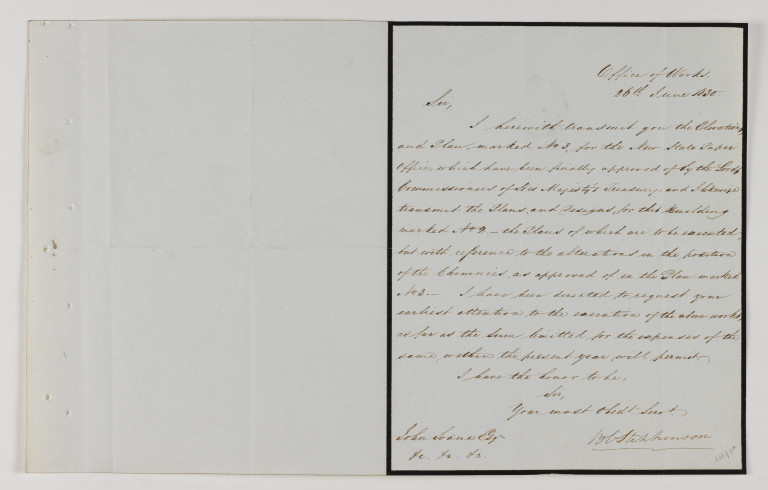 Office of Works.
26th June 1830
Sir,
I herewith transmit you the Elevations,
and Plan, marked No 3, for the New State Paper
Office, which have been finally approved of by the Lords
Commissioners of His Majesty's Treasury and I likewise
transmit the Plans, and Designs, for this Building
marked No 2 – the Plans of which are to be executed,
but with reference to the alterations in the position
of the Chimnies, as approved of in the Plan marked
No 3. – I have been directed to request your
earliest attention to the execution of the above works,
as far as the Sum limitted for the expenses of the
same, within the present year will permit,
I have the honor to be,
Sir,
Your most Obedt Servt,
BC Stephenson
John Soane Esqr
&c. &c. &c.